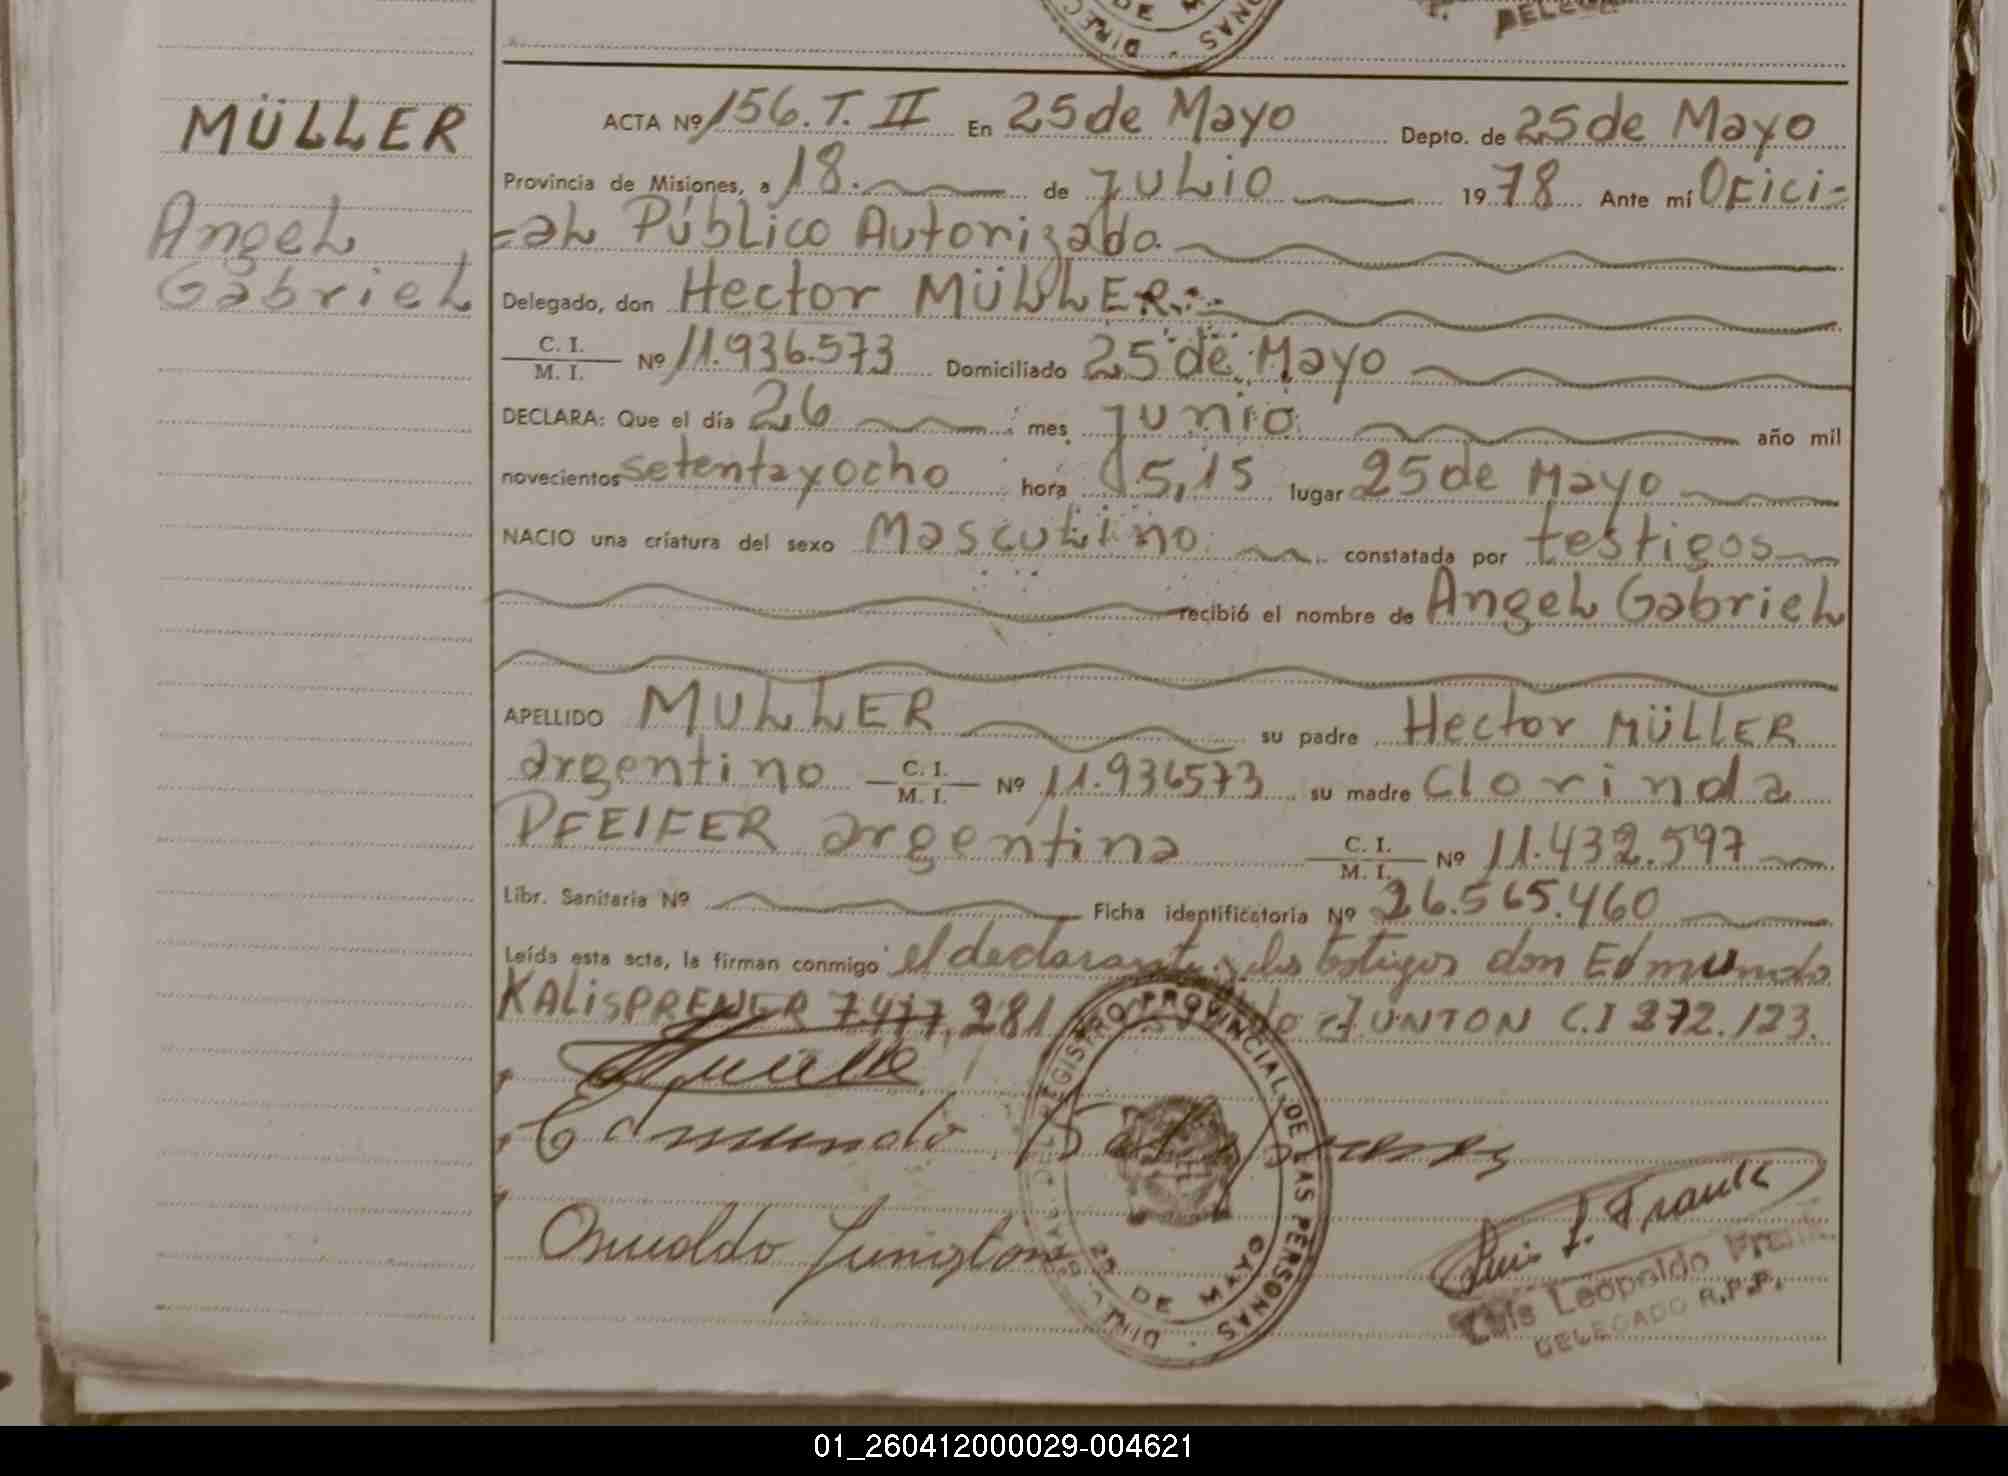 MÜLLER
Angel
Gabriel
ACTA Nº 156.T.II En 25 de Mayo Depto. de 25 de Mayo
Provincia de Misiones, a 18. de julio 1978 Ante mí Ofici=
=al Público Autorizado.
Delegado, don Hector MÜLLER.
C. I. / M. I. Nº 11.936.573 Domiciliado 25 de Mayo
DECLARA: Que el día 26 mes junio año mil
novecientos setentayocho hora 5,15 lugar 25 de Mayo
NACIO una críatura del sexo Masculino constatada por testigos
recibió el nombre de Angel Gabriel
APELLIDO MULLER su padre Hector MÜLLER
argentino C. I. / M. I. Nº 11.936573 su madre Clorinda
PFEIFER argentina C. I. / M. I. Nº 11.432.597
Libr. Sanitaria Nº Ficha identificatoria Nº 26.565.460
Leída esta acta, la firman conmigo el declarante y los testigos don Edmundo
KALISPRENER 7477.281 JUNTON C.I 272.123.
Edmundo
Osvaldo Jungton
REGISTRO PROVINCIAL DE LAS PERSONAS
25 DE MAYO
Luis L. Frank
Luis Leopoldo Frank
DELEGADO R.P.P.
DE M
DIREC
ONAS
DELEGA
01_260412000029-004621